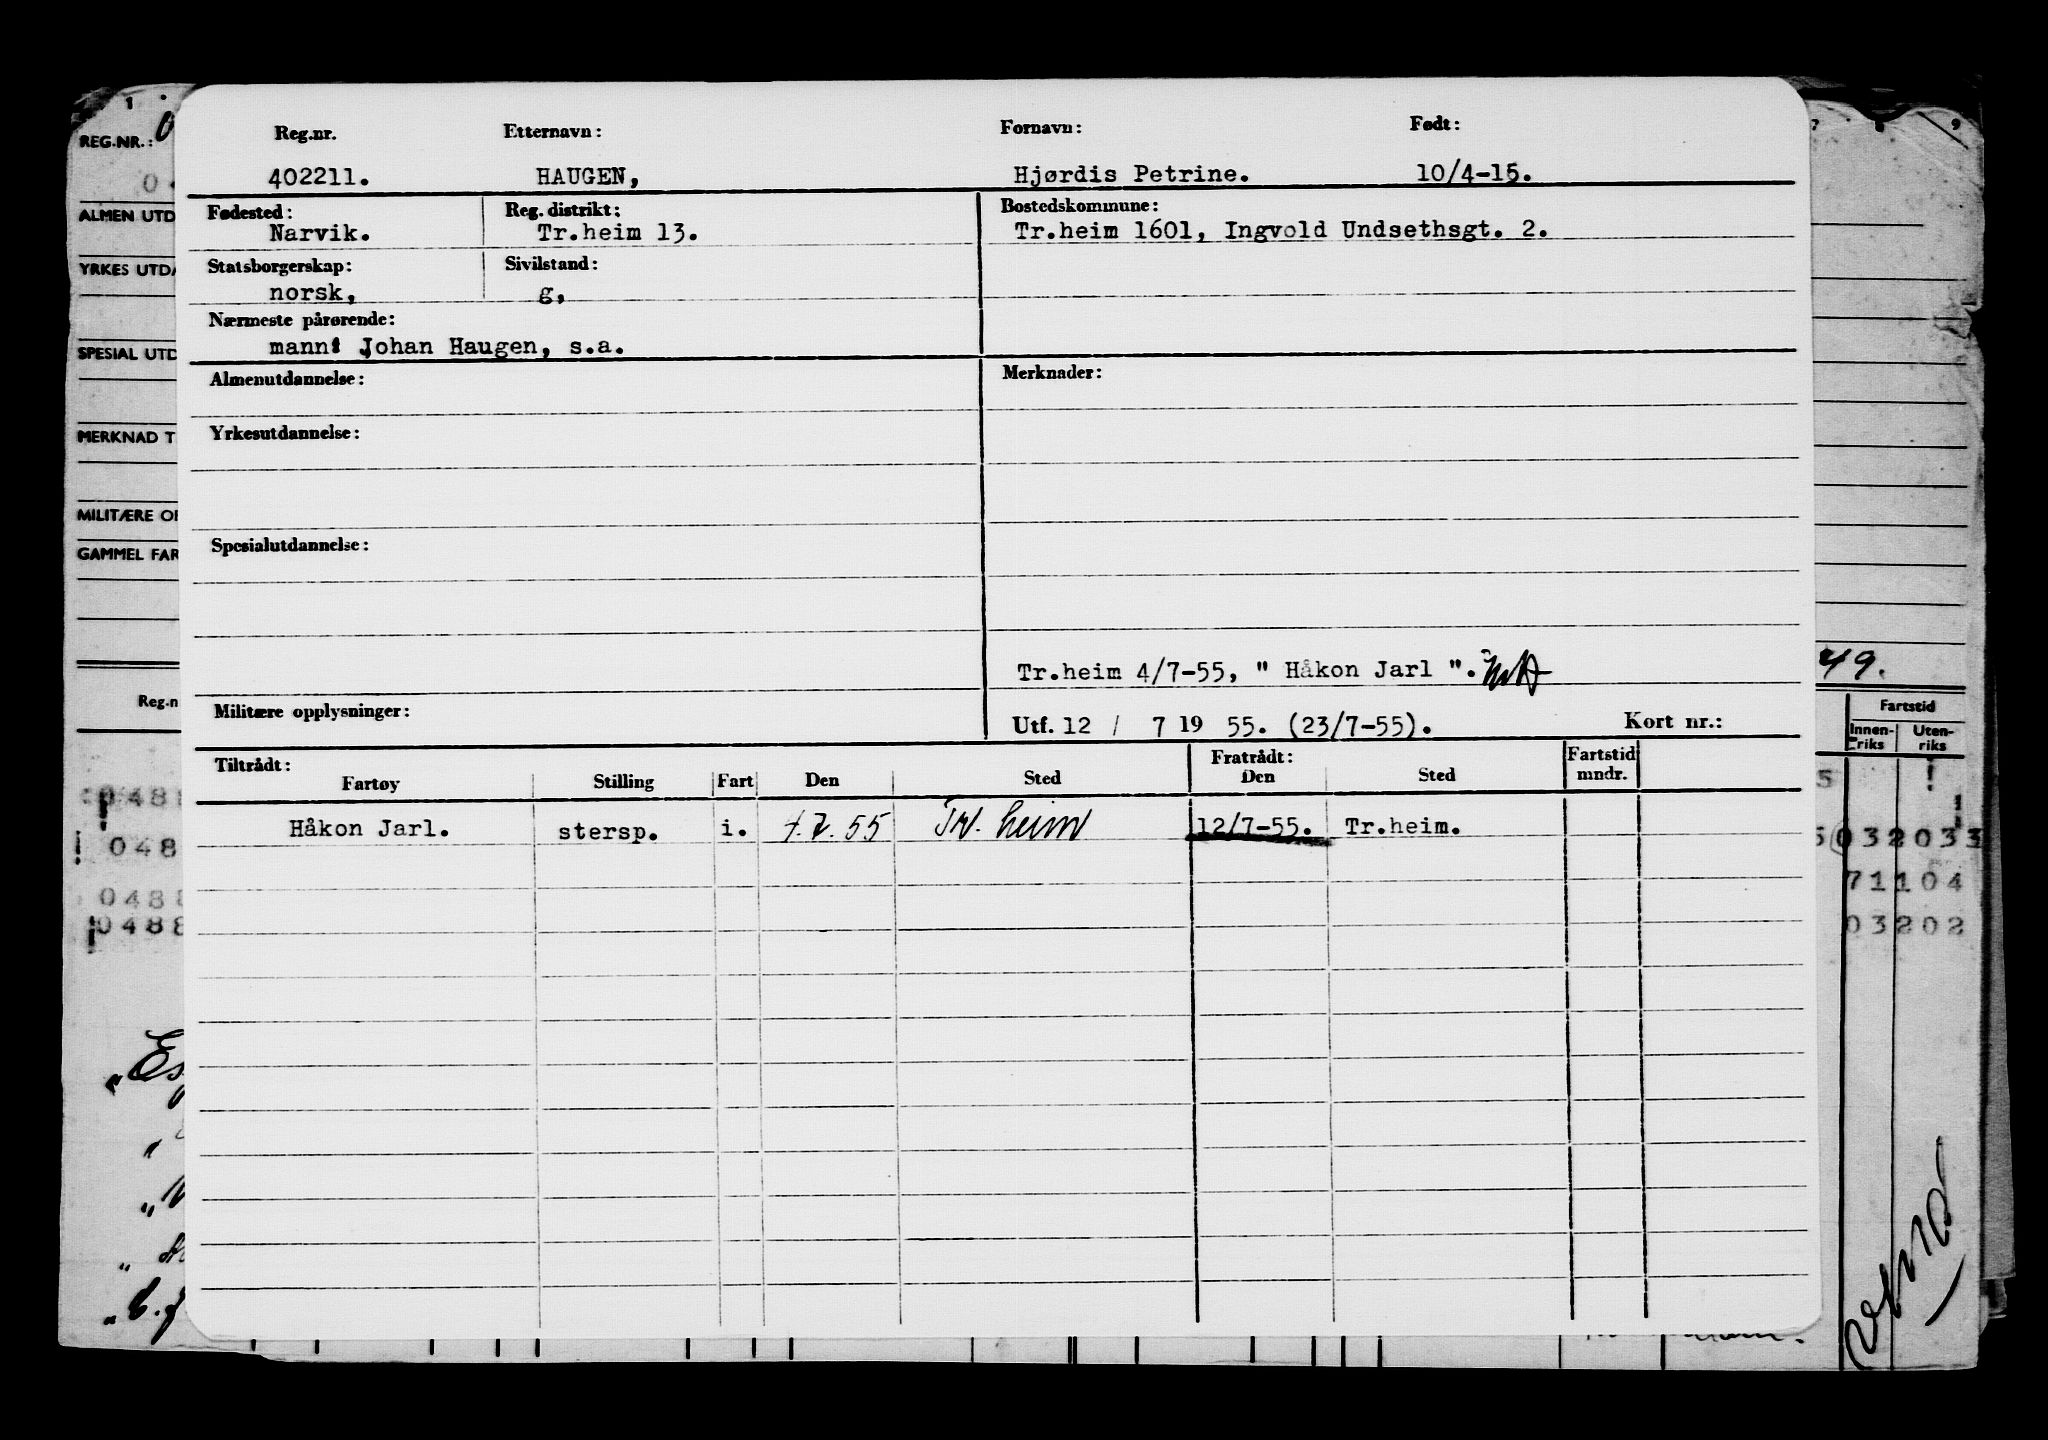 Reg.nr. Etternavn: Fornavn: Født:
402211. HAUGEN, Hjørdis Petrine. 10/4-15.
Fødested: Reg. distrikt: Bostedskommune:
Narvik. Tr.heim 13. Tr.heim 1601, Ingvold Undsethsgt. 2.
Statsborgerskap: Sivilstand:
norsk, g,
Nærmeste pårørende:
mann: Johan Haugen, s.a.
Almenutdannelse: Merknader:
Yrkesutdannelse:
Spesialutdannelse:
Tr.heim 4/7-55, " Håkon Jarl ".
Militære opplysninger: Utf. 12 / 7 19 55. (23/7-55). Kort nr.:
Tiltrådt: Fratrådt: Fartstid
Fartøy Stilling Fart Den Sted Den Sted mndr.
Håkon Jarl. stersp. i. 4.7.55 Tr.heim 12/7-55. Tr.heim.
REG.NR.:
ALMEN UTD
YRKES UTDA
SPESIAL UTD
MERKNAD T
MILITÆRE OP
GAMMEL FAR
Reg.n
0488
0488
7 8 9
49.
Fartstid
Innen-riks Uten-riks
032033
71104
03202